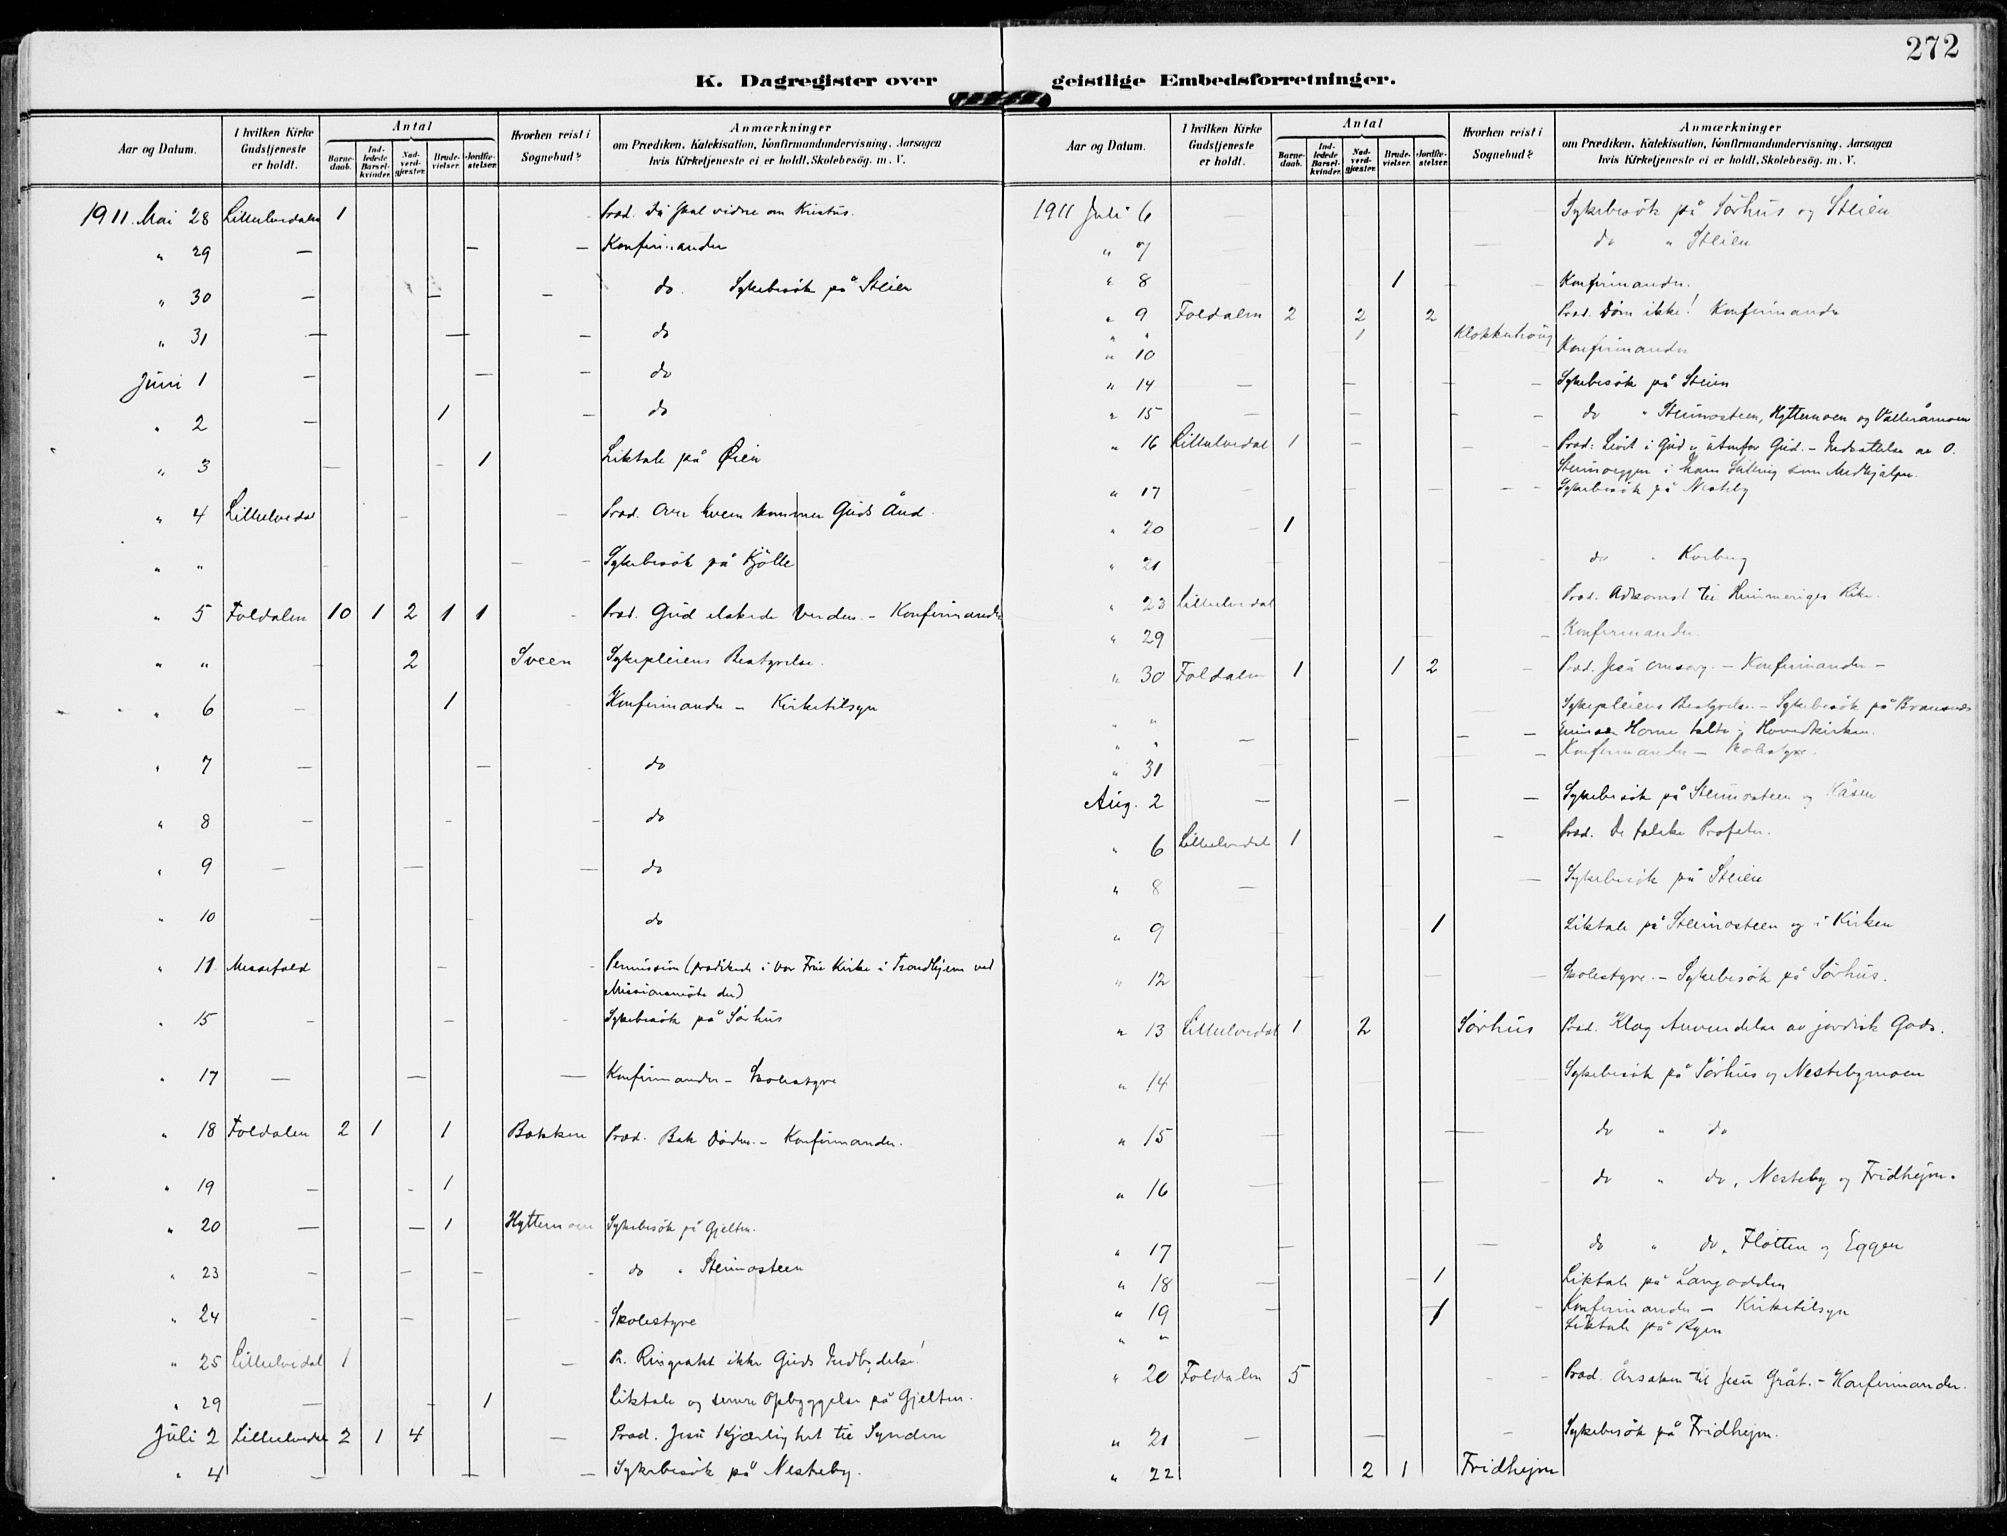 272
K. Dagregister over geistlige Embedsforretninger.
Aar og Datum. | I hvilken Kirke Gudstjeneste er holdt. | Antal | Barnedaab. | Indledede Barselkvinder. | Nadverdgjæster. | Brudevielser. | Jordfæstelser. | Hvorhen reist i Sognebud? | Anmærkninger om Prædiken, Katekisation, Konfirmandundervisning, Aarsagen hvis Kirketjeneste ei er holdt. Skolebesøg. m. V.
1911. Mai 28 Lilleelvedalen 1 Præd. Du skal vidne om Kristus.
" 29 — Konfirmander
" 30 — do. Sykebesök på Steien
" 31 — do
Juni 1 — do
" 2 — 1 do
" 3 — 1 Liktale på Øien
" 4 Lilleelvedal Præd. Over hvem kommer Guds Ånd.
" " Sykebesök på Kjölle
" 5 Foldalen 10 1 2 1 1 Præd. Gud elskede Verden. - Konfirmander
" " 2 Sveen Sykepleiens Bestyrelse.
" 6 — 1 Konfirmander - Kirketilsyn
" 7 — do
" 8 — do
" 9 — do
" 10 — do
" 11. Messefald Permission (prædikede i Vor Frue Kirke i Trondhjem ved
Missionsmöte der)
" 15 — Sykebesök på Sørhus
" 17 — Konfirmander - Skolestyre
" 18 Foldalen 2 1 1 Bakken Præd. Bak Döden. - Konfirmander.
" 19 — 1
" 20 — 1 Hyttemoen Sykebesök på Gjelten.
" 23 — do " Steimosteen
" 24 — Skolestyre
" 25 Lilleelvedal 1 Pr. Ringeakt ikke Guds Indbydelse!
" 29 — 1 Liktale og senere Opbyggelse på Gjelten.
Juli 2 Lilleelvedal 2 1 4 Præd. Jesu Kjærlighet til Syndere
" 4 — Sykebesök på Nesteby.
Aar og Datum. | I hvilken Kirke Gudstjeneste er holdt. | Antal | Barnedaab. | Indledede Barselkvinder. | Nadverdgjæster. | Brudevielser. | Jordfæstelser. | Hvorhen reist i Sognebud? | Anmærkninger om Prædiken, Katekisation, Konfirmandundervisning, Aarsagen hvis Kirketjeneste ei er holdt. Skolebesög. m. V.
1911 Juli 6 — Sykebesök på Sørhus og Steien
" 7 — do " Steien
" 8 1 Konfirmander.
" 9 Foldalen 2 2 2 Præd. Døm ikke! Konfirmander
" " 1 Klokkerhaug
" 10 Konfirmander
" 14 — Sykebesök på Steien
" 15 — do " Steimosteen, Hyttemoen og
" 16 Lilleelvedal 1 Præd: Livet i Gud og utenfor Gud. - Indsættelse av O.
Steimoeggen i hans Stilling som Medhjælper.
" 17 — Sykebesök på Nesteby
" 20 — 1
" 21 do " Korberg
" 23 Lilleelvedal Præd. Adkomst til Himmeriges Rike.
" 29 — Konfirmander.
" 30 Foldalen 1 1 2 Præd. Jesu Omsorg. - Konfirmander -
" " Sykepleiens Bestyrelse. - Sykebesök på
" " — Horne talte i Hovedkirken.
" 31 Konfirmander - Skolestyre.
Aug. 2 — Sykebesök på Steimosteen og Håsen
" 6 Lilleelvedal 1 Præd. De falske Profeter.
" 8 — Sykebesök på Steien
" 9 1 Liktale på Steimosteen og i Kirken
" 12 — Skolestyre. - Sykebesök på Sørhus.
" 13 Lilleelvedal 1 2 Sørhus Præd. Klog Anvendelse av jordisk Gods.
" 14 — Sykebesök på Sørhus og Nestebymoen
" 15 — do " do
" 16 — do " do, Nesteby og Fridhejm.
" 17 — do " do, Flötten og Eggen
" 18 1 Liktale på Langodden
" 19 — 1 Konfirmander - Kirketilsyn
" " Liktale på Ryen
" 20 Foldalen 5 Præd. Årsaken til Jesu Gråt. - Konfirmander.
" 21 — Sykebesök på Fridhejm.
" 22 2 1 Fridhejm